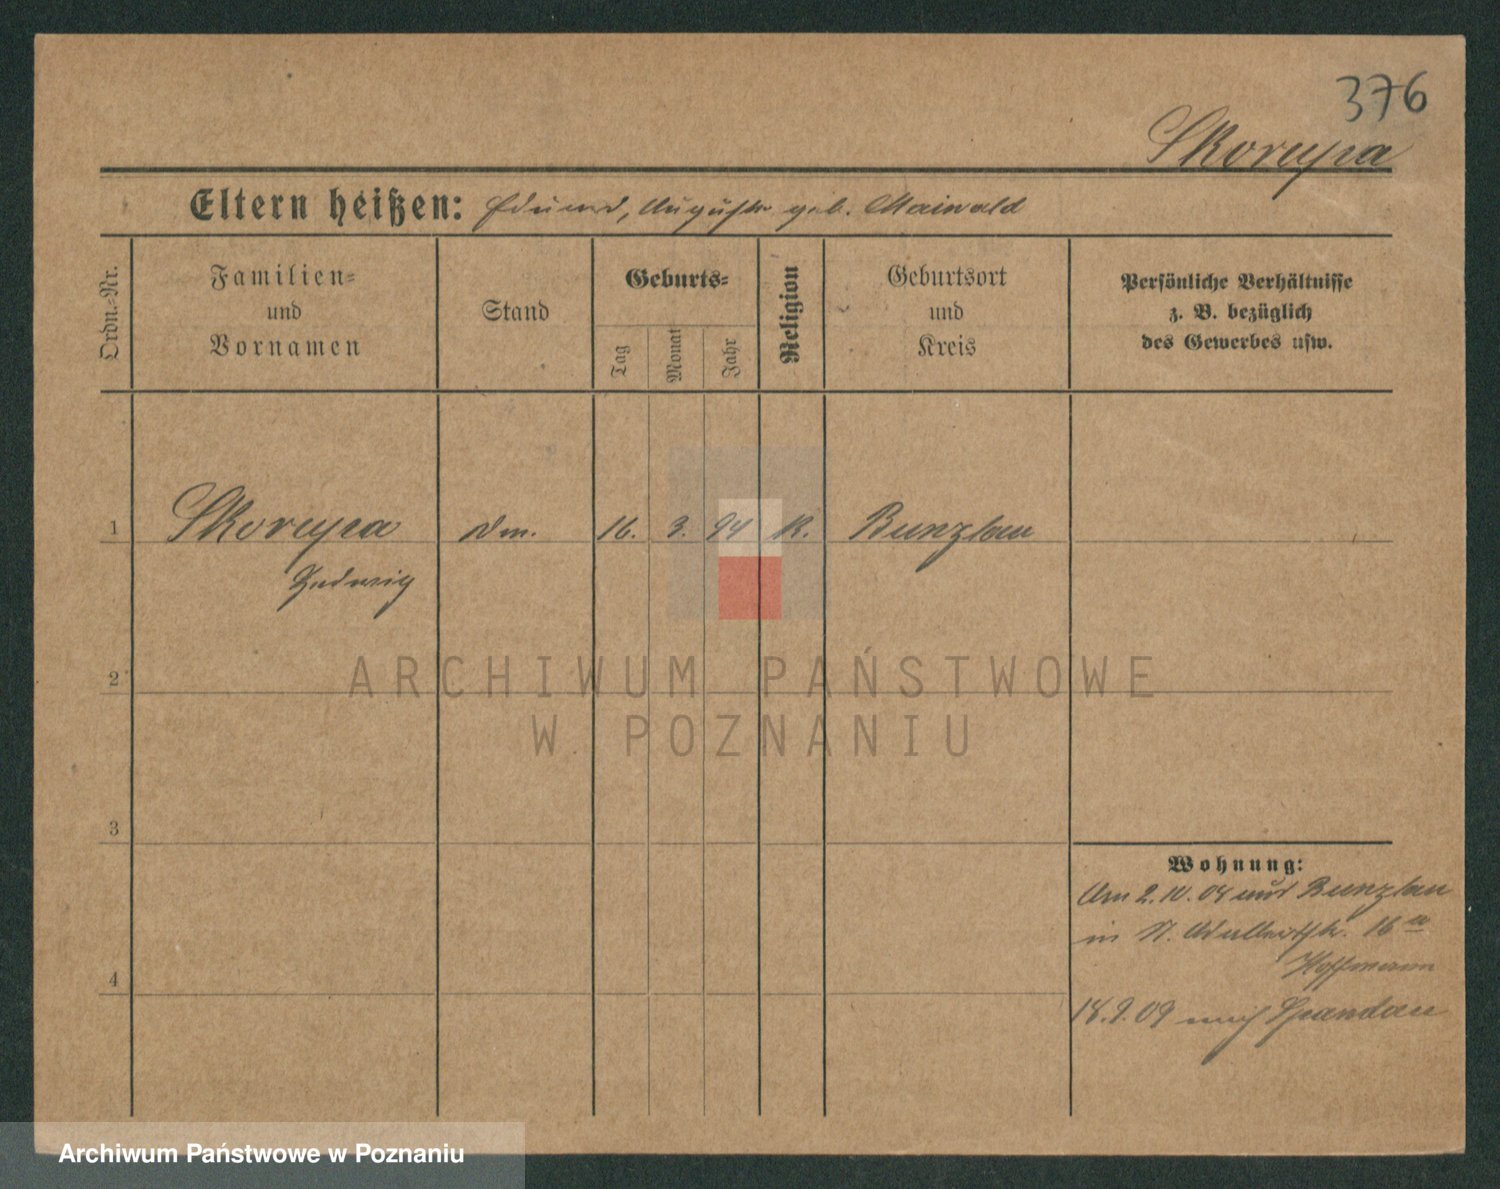 376
Skorupa
Eltern heißen: Eduard, Auguste geb. Mainald
Ordn.-Nr.
Familien-
und
Vornamen
Stand
Geburts-
Tag
Monat
Jahr
Religion
Geburtsort
und
Kreis
Persönliche Verhältnisse
z. B. bezüglich
des Gewerbes usw.
1
Skorupa
16. 3. 94 K. Bunzlau
Hedwig
2
ARCHIWUM PAŃSTWOWE
W POZNANIU
3
Wohnung:
Am 2. 10. 08 aus Bunzlau
in St. 16 a
Hoffmann
4
18. 9. 09 nach Spandau
Archiwum Państwowe w Poznaniu